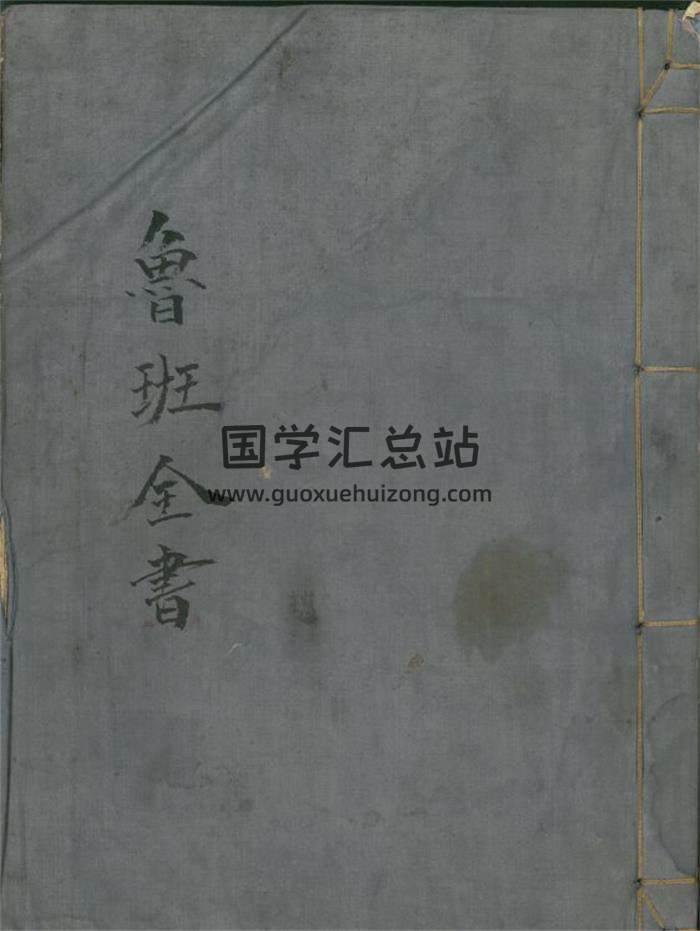 魯班全書
国学汇总站
www.guoxuehuizong.com